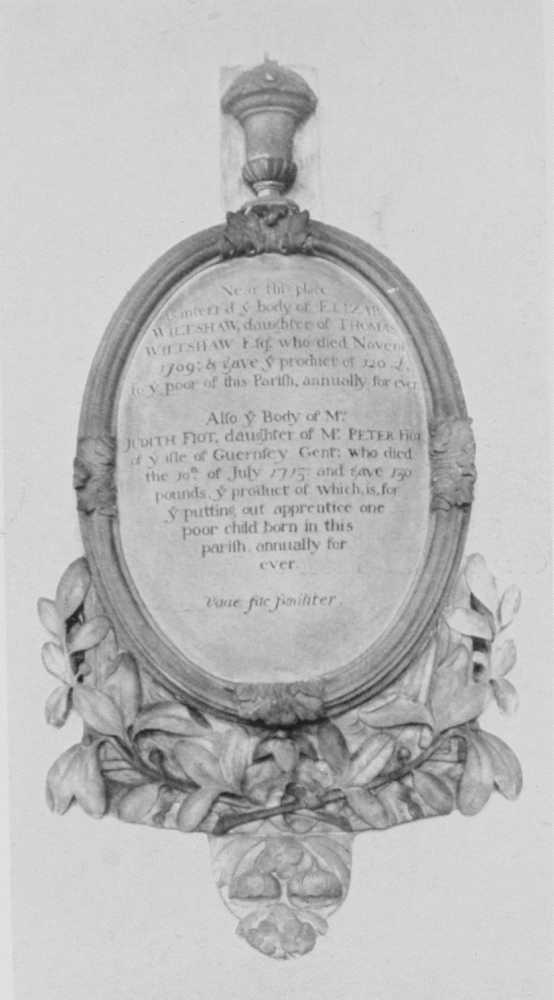 Near this place
is interr'd yͤ body of ELIZAB
WILTSHAW, daughter of THOMAS
WILTSHAW Esqͬ. who died Novem
1709: & gave yͤ product of 120 £.
to yͤ poor of this Parish, annually for ever
Also yͤ Body of Mͬˢ.
JUDITH FIOT, daughter of Mͬ. PETER FIOT
of yͤ isle of Guernsey Gentͭ: who died
the 10ᵗʰ. of July 1715: and gave 150
pounds, yͤ product of which, is, for
yͤ putting out apprentice one
poor child born in this
parish, annually for
ever.
Vade fac similiter.